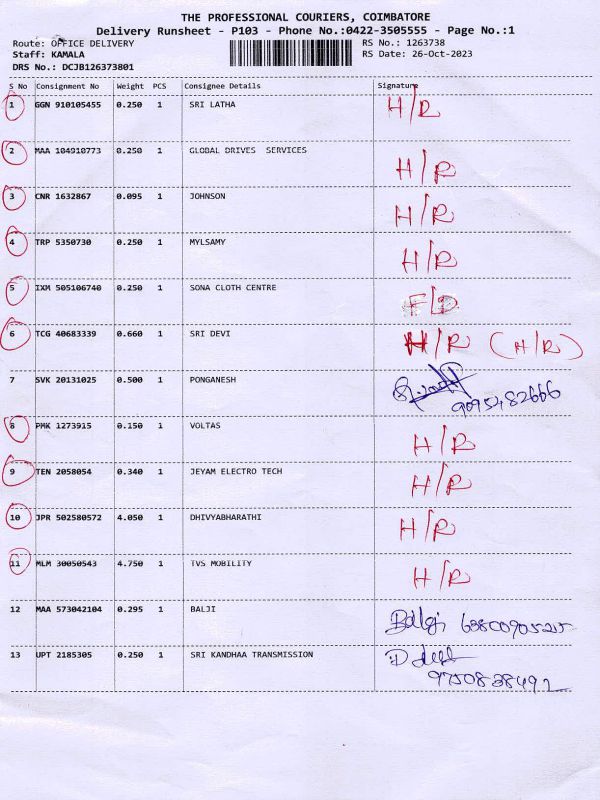 THE PROFESSIONAL COURIERS, COIMBATORE
Delivery Runsheet - P103 - Phone No.:0422-3505555 - Page No.:1
Route: OFFICE DELIVERY RS No.: 1263738
Staff: KAMALA RS Date: 26-Oct-2023
DRS No.: DCJB126373801
S No Consignment No Weight PCS Consignee Details Signature
1 GGN 910105455 0.250 1 SRI LATHA H/R
2 MAA 104910773 0.250 1 GLOBAL DRIVES SERVICES H/R
3 CNR 1632867 0.095 1 JOHNSON H/R
4 TRP 5350730 0.250 1 MYLSAMY H/R
5 IXM 505106740 0.250 1 SONA CLOTH CENTRE
6 TCG 40683339 0.660 1 SRI DEVI H/R (H/R)
7 SVK 20131025 0.500 1 PONGANESH
9095482666
8 PMK 1273915 0.150 1 VOLTAS H/R
9 TEN 2058054 0.340 1 JEYAM ELECTRO TECH H/R
10 JPR 502580572 4.050 1 DHIVYABHARATHI H/R
11 MLM 30050543 4.750 1 TVS MOBILITY H/R
12 MAA 573042104 0.295 1 BALJI
13 UPT 2185305 0.250 1 SRI KANDHAA TRANSMISSION